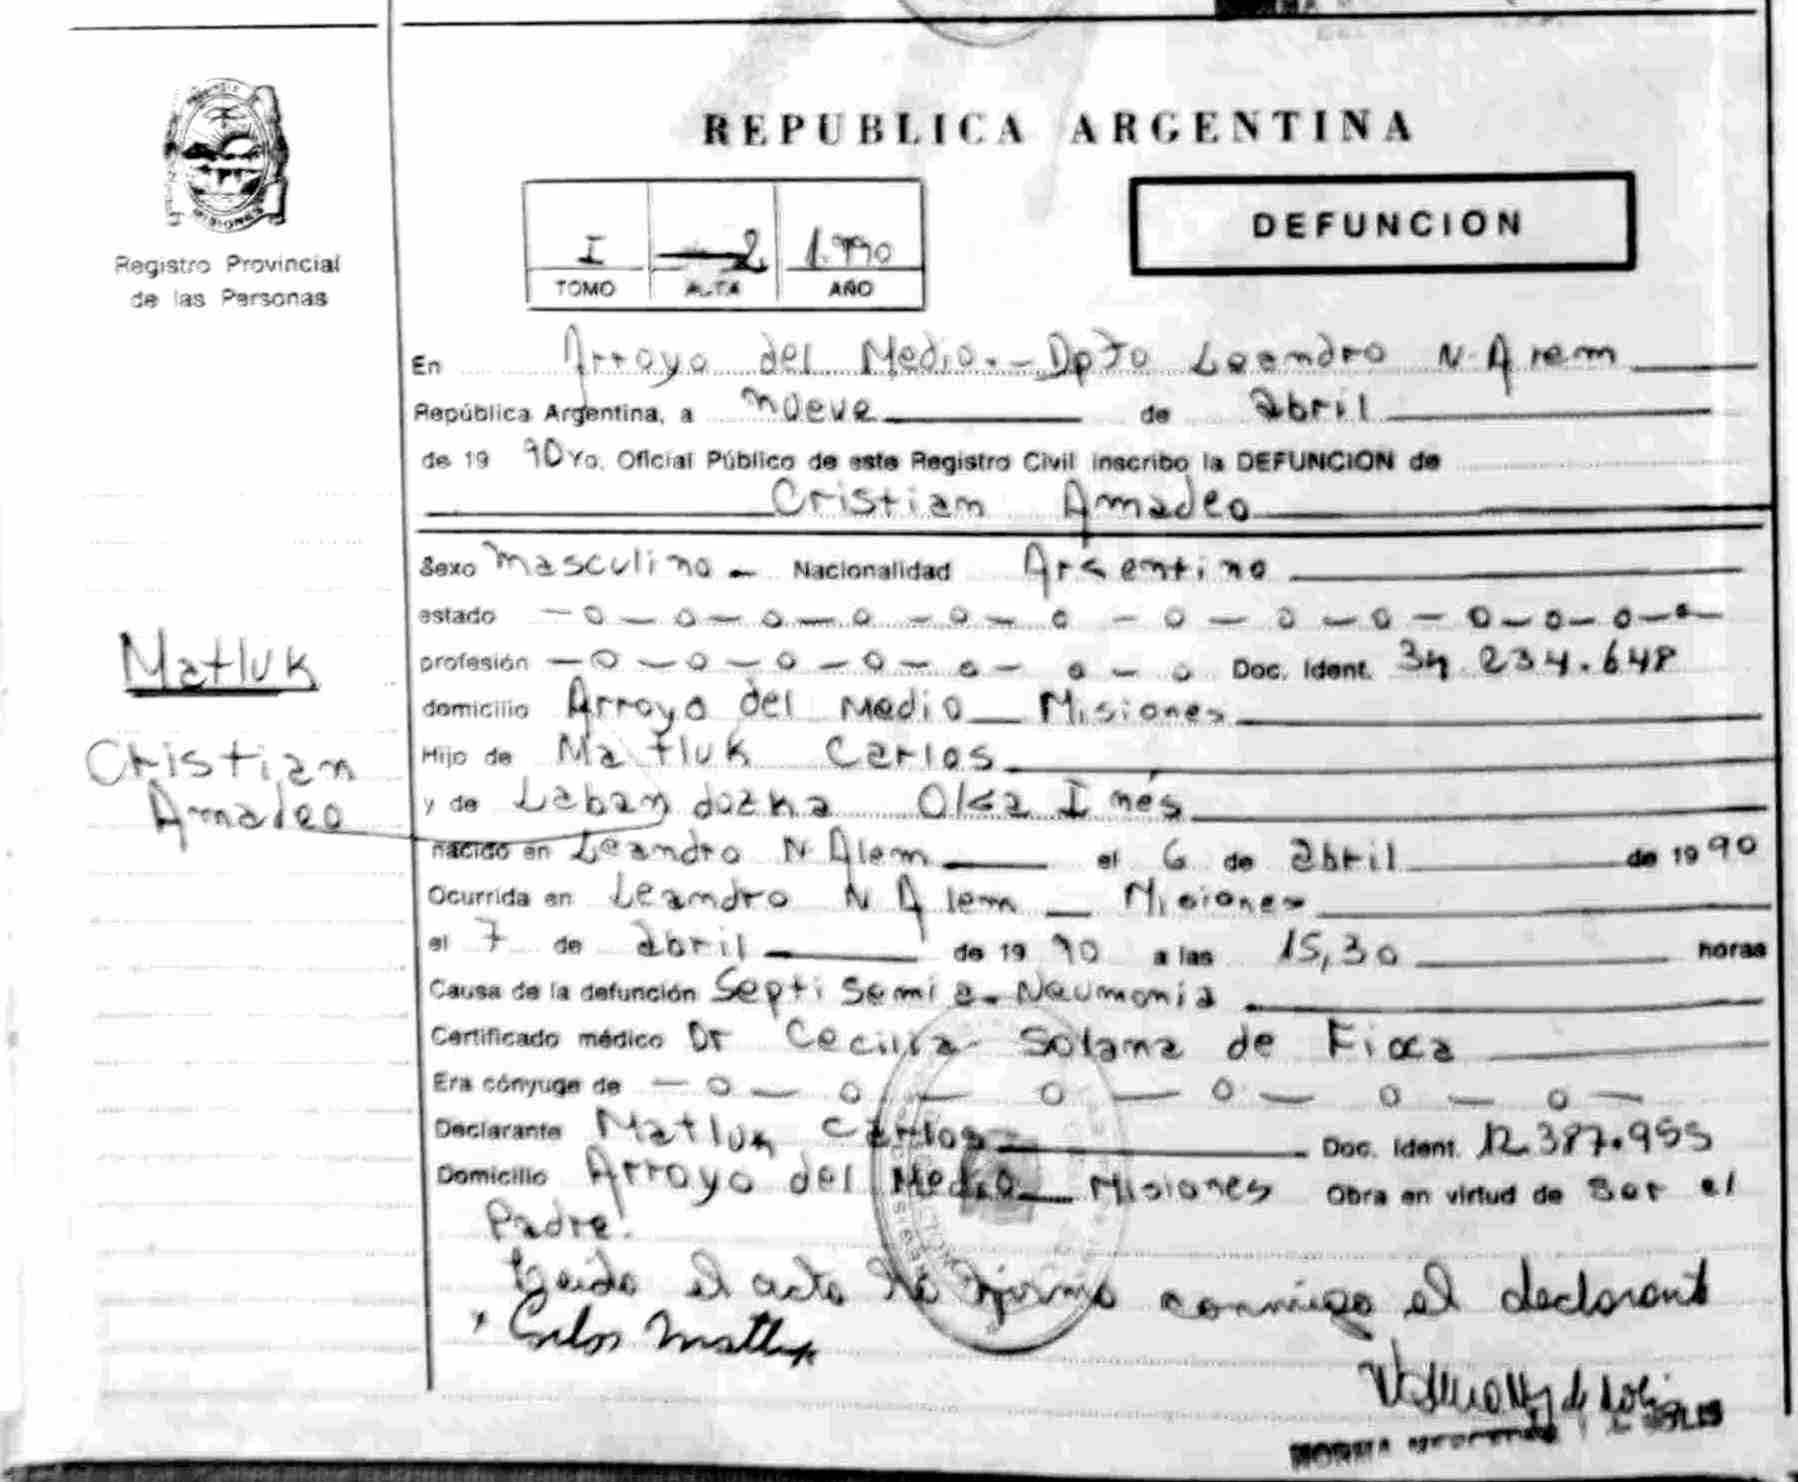 REPUBLICA ARGENTINA
MISIONES
Registro Provincial
de las Personas
DEFUNCION
I 2 1.990
TOMO ACTA AÑO
En Arroyo del Medio.- Dpto Leandro N. Alem
República Argentina, a nueve de abril
de 19 90 Yo, Oficial Público de este Registro Civil inscribo la DEFUNCION de
Cristian Amadeo
Sexo masculino - Nacionalidad Argentino
estado -o-o-o-o-o-o-o-o-o-o-o-o-o-
profesión -o-o-o-o-o-o-o Doc. Ident. 34.234.648
domicilio Arroyo del Medio - Misiones
Matluk
Hijo de Matluk Carlos
Cristian
y de Labandozka Olga Inés
Amadeo
nacido en Leandro N Alem el 6 de abril de 19 90
Ocurrida en Leandro N Alem - Misiones
el 7 de abril de 19 90 a las 15,30 horas
Causa de la defunción Septisemia - Neumonia
Certificado médico Dr Cecilia Solana de
Era cónyuge de -o-o-o-o-o-o-
Declarante Matluk Carlos Doc. Ident. 12.387.955
Domicilio Arroyo del Medio - Misiones Obra en virtud de Ser el
Padre.
Leida el acta la firma conmigo el declarante
Carlos Matluk
NORMA